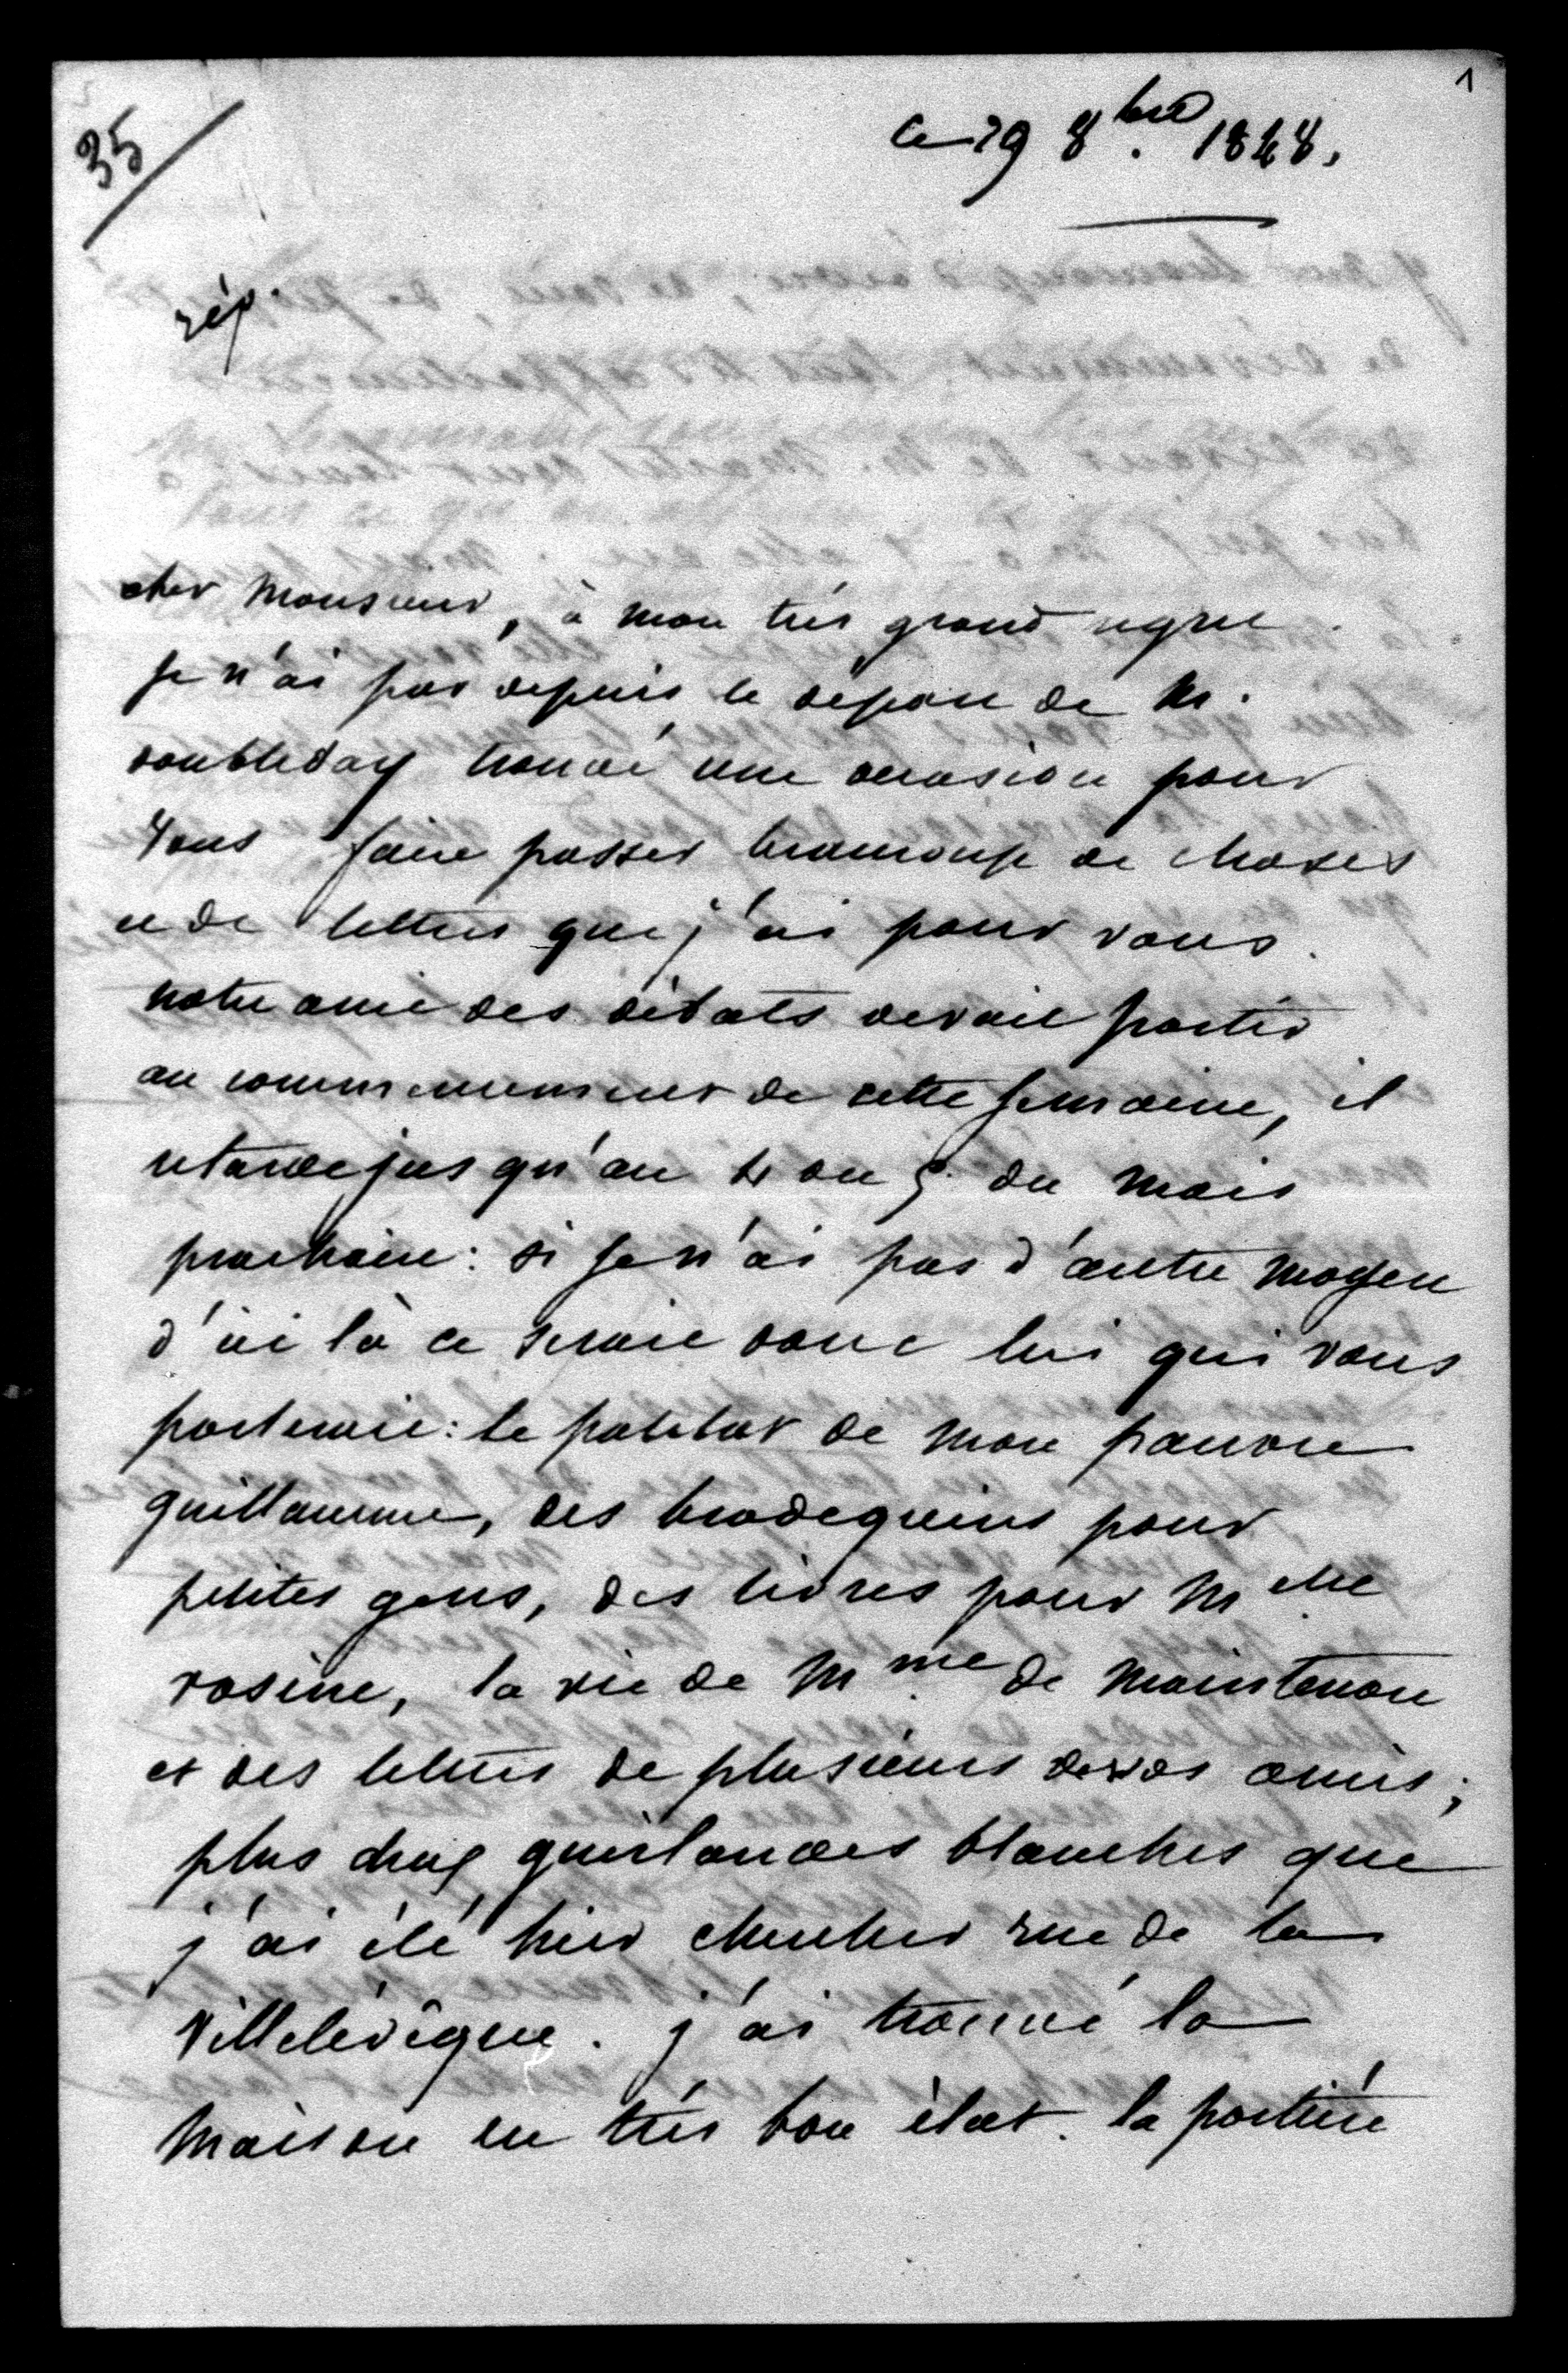 1
35
ce 29 8bre. 1848.
rép.
cher monsieur, à mon très grand regret
je n'ai pas depuis le départ de M.
doubleday trouvé une occasion pour
vous faire passer beaucoup de choses
et de lettres que j'ai pour vous.
notre ami des débats devait partir
au commencement de cette semaine, il
retarde jusqu'au 4 ou 5 du mois
prochain: si je n'ai pas d'autre moyen
d'ici là ce serait donc lui qui vous
porterait: le paletot de mon pauvre
guillaume, des brodequins pour
petites gens, des livres pour Melle
rosine, la vie de Mme de Maintenon
et des lettres de plusieurs de vos amis;
plus guirlandes blanches que
j'ai été hier chercher rue de la
Villelévêque. j'ai trouvé la
maison en très bon état. la portière